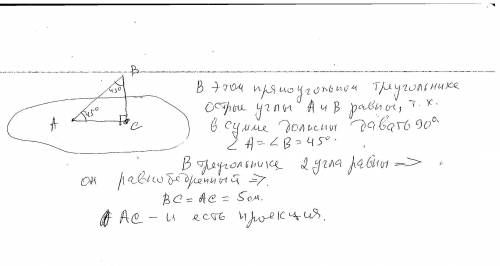 B
45°
A
45°
C
В этом прямоугольном треугольнике
острые углы A и B равны, т.к.
в сумме должны давать 90°
∠A=∠B=45°.
В треугольнике 2 угла равны =>
он равнобедренный =>.
BC = AC = 5см.
AC – и есть проекция.